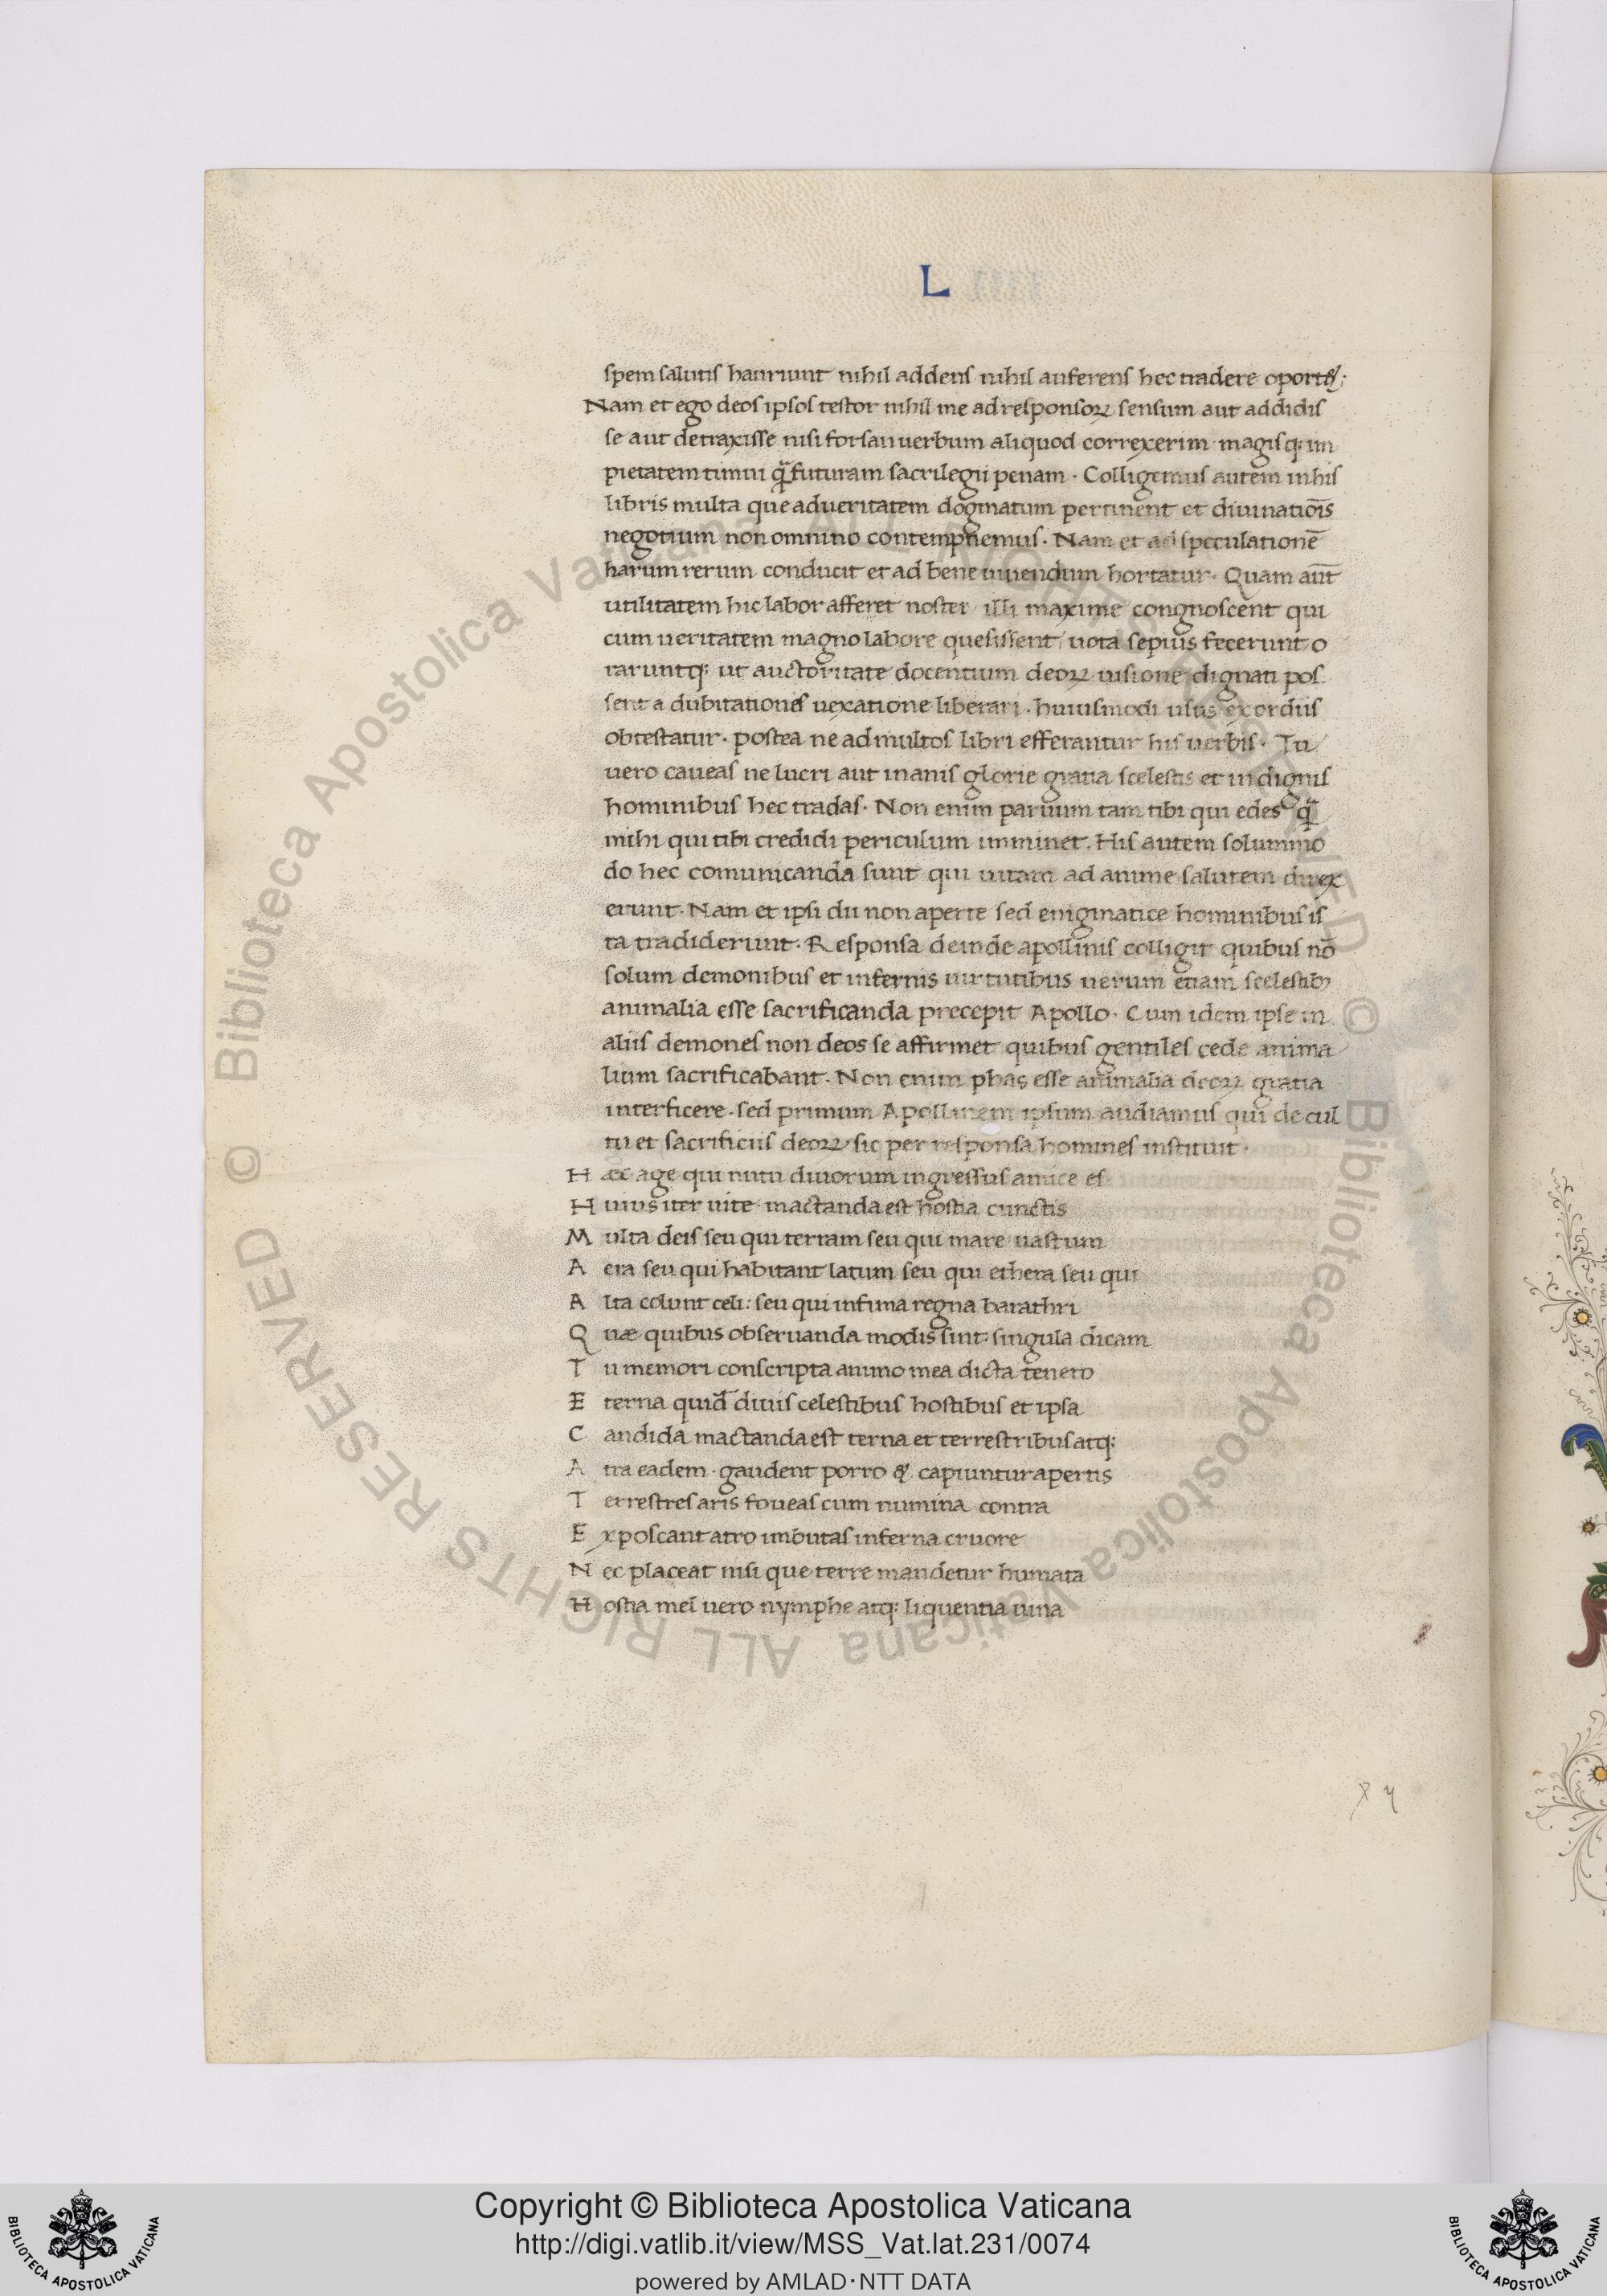 L
spem salutis hauriunt nihil addens nihil auferens hec tradere oportꝫ;
Nam et ego deos ipsos testor nihil me ad responsoꝝ sensum aut addidis
se aut detraxisse nisi forsan uerbum aliquod correxerim magisqꝫ im
pietatem timui q̄ futuram sacrilegii penam · Colligemus autem in his
libris multa que ad ueritatem dogmatum pertinent et diuinatiōis
negotium non omnino contempnemus · Nam et ad speculationē
harum rerum conducit et ad bene uiuendum hortatur · Quam aūt
utilitatem hic labor afferet noster illi maxime congnoscent qui
cum ueritatem magno labore quesissent uota sepius fecerunt o
raruntqꝫ ut auctoritate docentium deoꝝ uisione dignati pos
sent a dubitationes uexatione liberari · huiusmodi usus exordiis
obtestatur · postea ne ad multos libri efferantur his uerbis · Tu
uero caueas ne lucri aut inanis glorie gratia scelestis et indignis
hominibus hec tradas · Non enim paruum tam tibi qui edes q̄
mihi qui tibi credidi periculum imminet . His autem solummo
do hec comunicanda sunt qui uitam ad anime salutem direx
erunt · Nam et ipsi dii non aperte sed enigmatice hominibus is
ta tradiderunt · Responsa deinde apollinis colligit quibus nō
solum demonibus et infernis uirtutibus uerum etiam scelestibꝫ
animalia esse sacrificanda precepit Apollo · Cum idem ipse in
aliis demones non deos se affirmet quibus gentiles cede anima
lium sacrificabant · Non enim phas esse animalia deoꝝ gratia
interficere · sed primum Apollinem ipsum audiamus qui de cul
tu et sacrificiis deoꝝ sic per responsa homines instituit ·
H æc age qui nutu diuorum ingressus amice es
H uius iter uite mactanda est hostia cunctis
M ulta deis seu qui terram seu qui mare uastum
A era seu qui habitant latum seu qui ethera seu qui
A lta colunt celi: seu qui infima regna barathri
Q uæ quibus obseruanda modis sint: singula dicam
T u memori conscripta animo mea dicta teneto
E terna quid̄ diuis celestibus hostibus et ipsa
C andida mactanda est terna et terrestribus atqꝫ
A tra eadem · gaudent porro qꝫ capiuntur apertis
T errestres aris foueas cum numina contra
E xposcant atro imbutas inferna cruore
N ec placeat nisi que terre mandetur humata
H ostia mel uero nymphe atqꝫ liquentia uina
© Biblioteca Apostolica Vaticana ALL RIGHTS RESERVED © Biblioteca Apostolica Vaticana ALL RIGHTS RESERVED
BIBLIOTECA APOSTOLICA VATICANA
Copyright © Biblioteca Apostolica Vaticana
http://digi.vatlib.it/view/MSS_Vat.lat.231/0074
powered by AMLAD·NTT DATA
BIBLIOTECA APOSTOLICA VATICANA